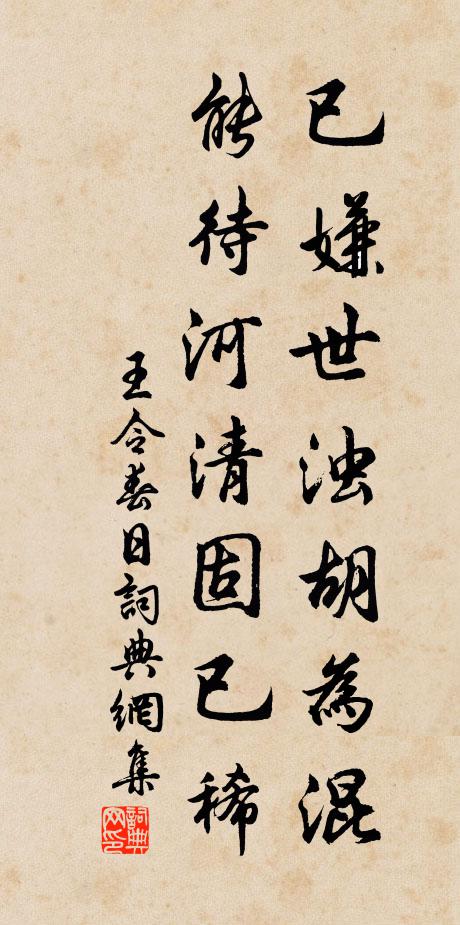 已嫌世浊胡為混
能待河清固已稀
王令春日詞典網集
詞典网印